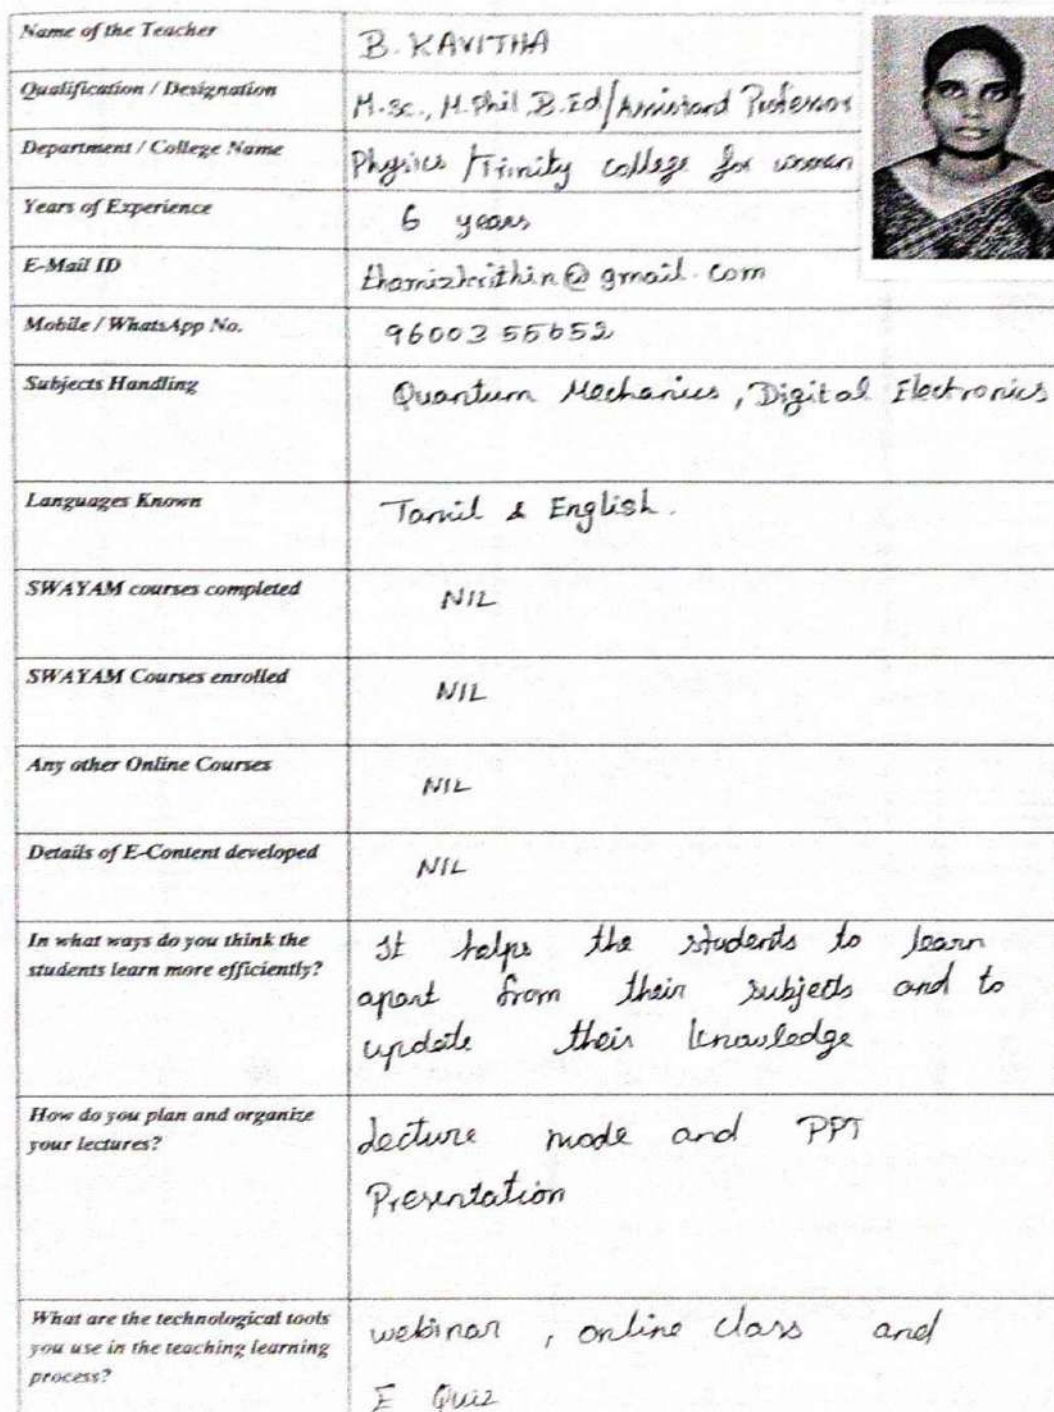 Name of the Teacher
B. KAVITHA
Qualification / Designation
M.Sc., M.Phil B.Ed/Assistant Professor
Department / College Name
Physics / Trinity college for women
Years of Experience
6 years
E-Mail ID
@gmail.com
Mobile / WhatsApp No.
Subjects Handling
Quantum Mechanics, Digital Electronics
Languages Known
Tamil & English.
SWAYAM courses completed
NIL
SWAYAM Courses enrolled
NIL
Any other Online Courses
NIL
Details of E-Content developed
NIL
In what ways do you think the
students learn more efficiently?
It helps the students to learn
apart from their subjects and to
update their knowledge
How do you plan and organize
your lectures?
Lecture mode and PPT
Presentation
What are the technological tools
you use in the teaching learning
process?
webinar, online class and
E Quiz